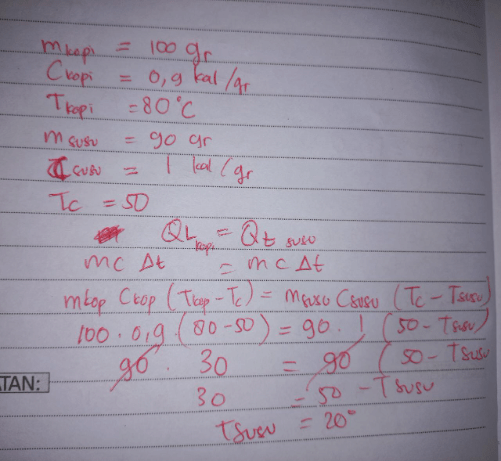 mkopi = 100 gr
Ckopi = 0,9 kal/gr
Tkopi = 80°C
msusu = 90 gr
Csusu = 1 kal/gr
Tc = 50
QLkopi = Qt susu
mc Δt = mc Δt
mkop Ckop (Tkop - Tc) = msusu Csusu (Tc - Tsusu)
100 . 0,9 (80-50) = 90 . 1 (50 - Tsusu)
90 . 30 = 90 (50 - Tsusu
30 = 50 - Tsusu
tsusu = 20°
TAN: